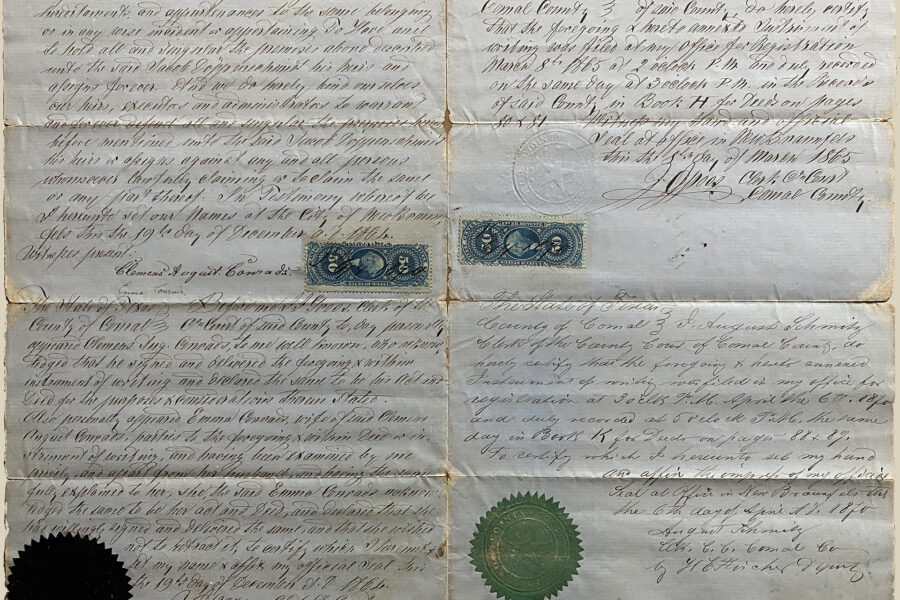 hereditaments, and appurtenances to the same belonging
or in any wise incident or appertaining To Have and
to hold all and singular the premises above described
unto the said Jacob his heirs and
assigns forever. And we do hereby bind ourselves
our heirs, executors and administrators to warrant
and forever defend all and singular the premises
before mentioned unto the said Jacob
his heirs & assigns against any and all persons
whomsoever lawfully claiming or to claim the same
or any part thereof. In Testimony whereof we
hereunto set our Names at the City of New Braun
fels this the 19th day of December A.D. 1864.
Witness present:
Clemens August Conrads.
Emma Conrads
50 50
The State of Texas Before me Clerk of the
County of Comal Co Court of said County to day personally
appeared Clemens Aug. Conrads, to me well known, who acknow
ledged that he signed and delivered the foregoing & within
instrument of writing and declared the same to be his Act and
Deed for the purposes & consideration therein stated.
Also personally appeared Emma Conrads, wife of said Clemens
August Conrads, parties to the foregoing & within Deed or in
strument of writing, and having been examined by me
privily and apart from her husband and having the same
fully explained to her, she, the said Emma Conrads acknow
ledged the same to be her act and Deed, and declared that she
had willingly signed and delivered the same and that she wished
not to retract it, to certify which I hereunto
set my name & affix my official Seal this
the 19th day of December A.D. 1864.
Comal County of said County, do hereby certify
that the foregoing & hereto annexed Instrument of
writing was filed at my Office for Registration
March 8th 1865 at 2 oclock P.M. and duly recorded
on the same day at 3 oclock P.M. in the Records
of said County in Book H for Deeds on pages
80 & 81. Witness my Hand and official
Seal at office in New Braunfels
this the 8th day of March 1865
Clerk Co Court
Comal County.
50 50
The State of Texas
County of Comal I, August Schmitz
Clerk of the County Court of Comal County, do
hereby certify that the foregoing & hereto annexed
Instrument of writing was filed in my office for
registration at 3 oclk P.M. April the 6th 1870
and duly recorded at 5 oclock P.M. the same
day in Book K for Deeds on pages 88 & 89.
To certify which I hereunto set my hand
and affix the impress of my official
Seal at Office in New Braunfels this
the 6th day of April A.D. 1870
August Schmitz
Clk. C. C. Comal Co
by H E Fischer Dpty.